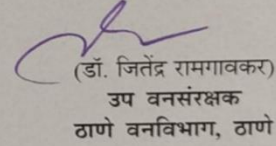 (डॉ. जितेंद्र रामगावकर)
उप वनसंरक्षक
ठाणे वनविभाग, ठाणे